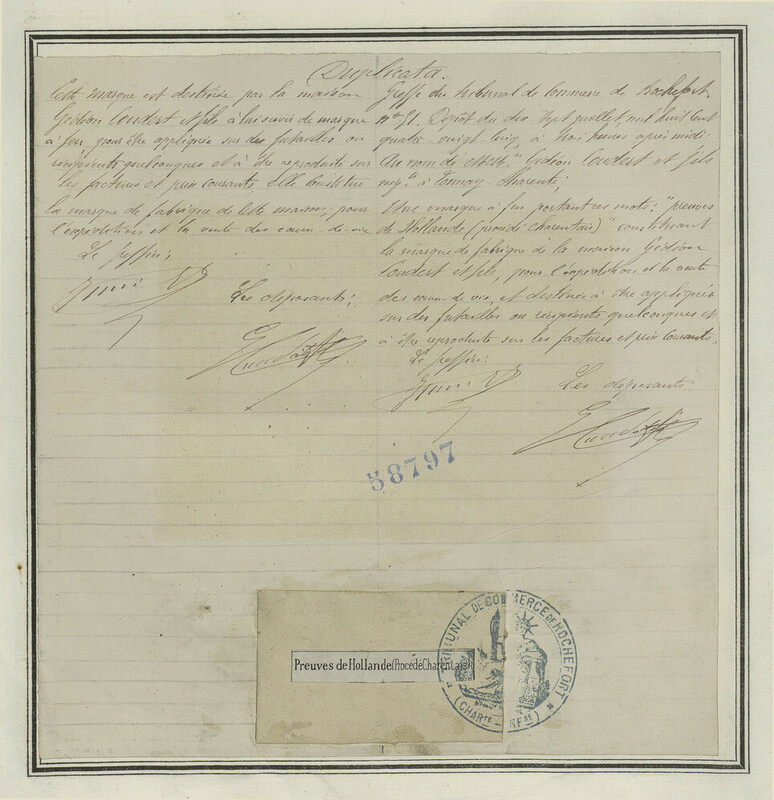 Duplicata.
Cette marque est destinée par la maison
Gédéon Coudert et fils à lui servir de marque
à feu pour être appliquée sur des futailles ou
récipients quelconques et à être reproduite sur
les factures et prix courants elle constitue
la marque de fabrique de cette maison pour
l'expédition et la vente des eaux-de-vie
Le greffier;
Les déposants:
Greffe du tribunal de Commerce de Rochefort
nº 71. Dépôt du dix sept juillet mil huit cent
quatre vingt cinq, à trois heures après midi
Au nom de Gédéon Coudert et fils
négts à Tonnay-Charente;
Une marque à feu portant ces mots: "preuves
de Hollande (procédé charentais)" constituant
la marque de fabrique de la maison Gédéon
Coudert et fils, pour l'expédition et la vente
des eaux de vie, et destinée à être appliquée
sur des futailles ou récipients quelconques et
à être reproduite sur les factures et prix courants.
Le greffier:
Les déposants
58797
Preuves de Hollande (Procédé Charentais)
TRIBUNAL DE COMMERCE DE ROCHEFORT
(CHARTE - INFRE)
1